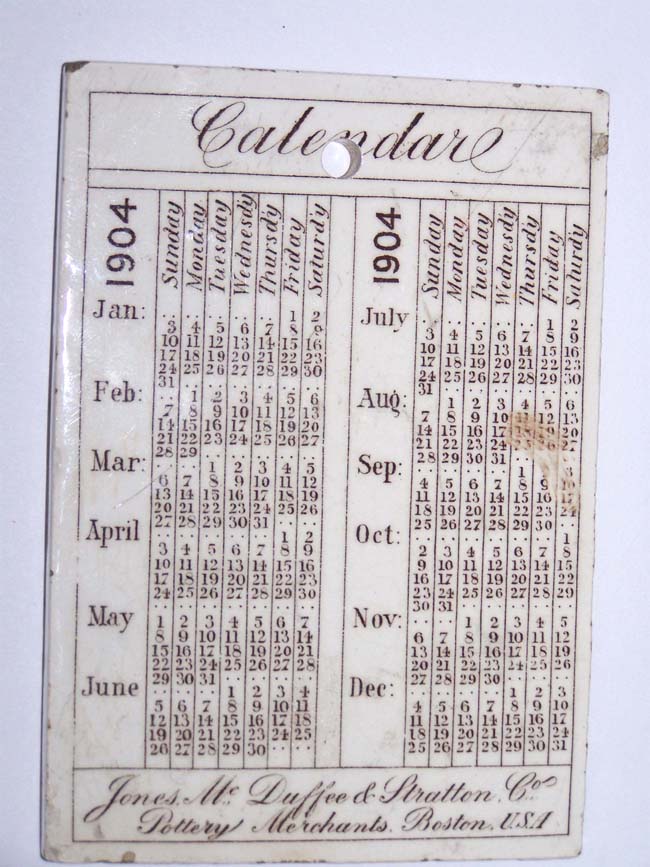 Calendar
1904 Sunday Monday Tuesday Wednesdy Thursdy Friday Saturdy
Jan: 1 2
3 4 5 6 7 8 9
10 11 12 13 14 15 16
17 18 19 20 21 22 23
24 25 26 27 28 29 30
31
Feb: 1 2 3 4 5 6
7 8 9 10 11 12 13
14 15 16 17 18 19 20
21 22 23 24 25 26 27
28 29
Mar: 1 2 3 4 5
6 7 8 9 10 11 12
13 14 15 16 17 18 19
20 21 22 23 24 25 26
27 28 29 30 31
April 1 2
3 4 5 6 7 8 9
10 11 12 13 14 15 16
17 18 19 20 21 22 23
24 25 26 27 28 29 30
May 1 2 3 4 5 6 7
8 9 10 11 12 13 14
15 16 17 18 19 20 21
22 23 24 25 26 27 28
29 30 31
June 1 2 3 4
5 6 7 8 9 10 11
12 13 14 15 16 17 18
19 20 21 22 23 24 25
26 27 28 29 30
1904 Sunday Monday Tuesday Wednesdy Thursdy Friday Saturdy
July 1 2
3 4 5 6 7 8 9
10 11 12 13 14 15 16
17 18 19 20 21 22 23
24 25 26 27 28 29 30
31
Aug: 1 2 3 4 5 6
7 8 9 10 11 12 13
14 15 16 17 18 19 20
21 22 23 24 25 26 27
28 29 30 31
Sep: 1 3
4 5 6 7 8 9 10
11 12 13 14 15 16 17
18 19 20 21 22 23 24
25 26 27 28 29 30
Oct: 1
2 3 4 5 6 7 8
9 10 11 12 13 14 15
16 17 18 19 20 21 22
23 24 25 26 27 28 29
30 31
Nov: 1 2 3 4 5
6 7 8 9 10 11 12
13 14 15 16 17 18 19
20 21 22 23 24 25 26
27 28 29 30
Dec: 1 2 3
4 5 6 7 8 9 10
11 12 13 14 15 16 17
18 19 20 21 22 23 24
25 26 27 28 29 30 31
Jones, Mc Duffee & Stratton, Co.
Pottery Merchants. Boston. U.S.A